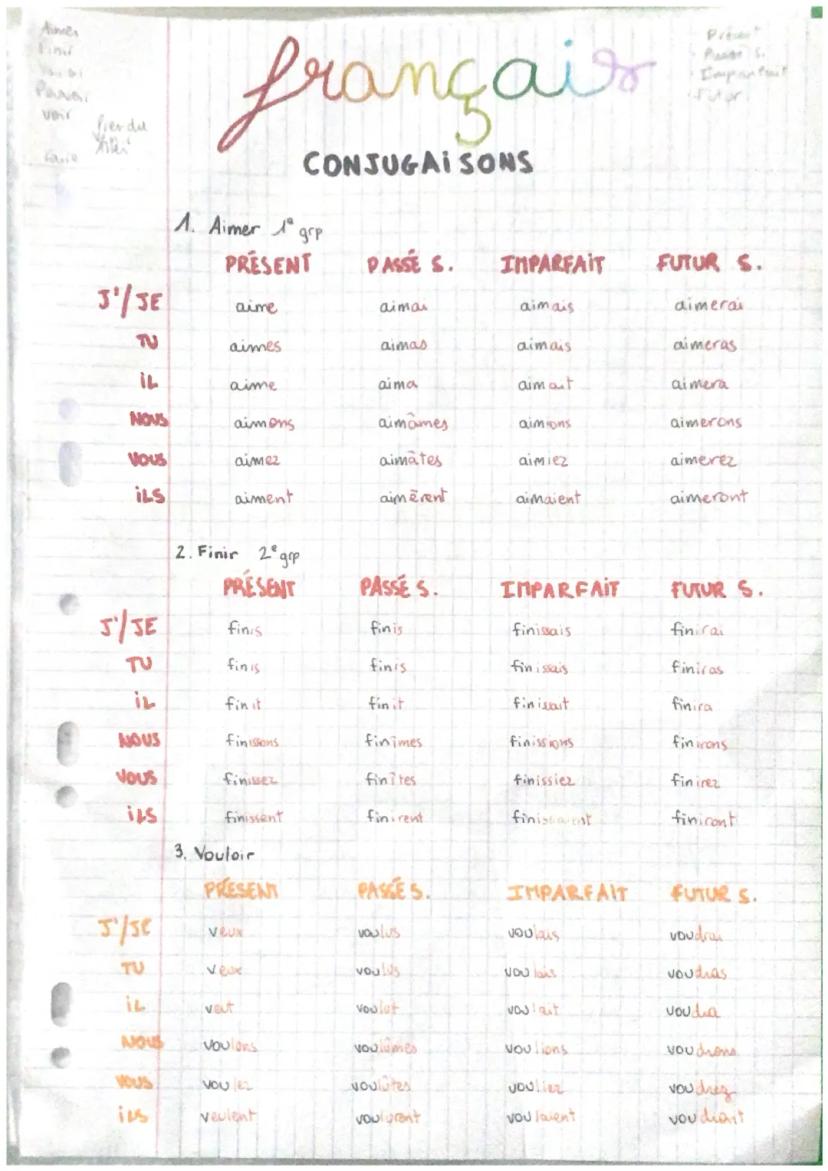 Aimer
Finir
Pouvoir
voir
Faire
Présent
Passé s.
Imparfait
Futur
français
CONJUGAiSONS
1. Aimer 1e grp
PRÉSENT PASSÉ S. IMPARFAIT FUTUR S.
J'/JE aime aimai aimais aimerai
TU aimes aimas aimais aimeras
iL aime aima aimait aimera
NOUS aimons aimâmes aimions aimerons
VOUS aimez aimâtes aimiez aimerez
iLS aiment aimèrent aimaient aimeront
2. Finir 2e grp
PRÉSENT PASSÉ S. IMPARFAIT FUTUR S.
J'/JE finis finis finissais finirai
TU finis finis finissais finiras
iL finit finit finissait finira
NOUS finissons finîmes finissions finirons
VOUS finissez finîtes finissiez finirez
iLS finissent finirent finissaient finiront
3. Vouloir
PRÉSENT PASSÉ S. IMPARFAIT FUTUR S.
J'/JE veux voulus voulais voudrai
TU veux voulus voulais voudras
iL veut voulut voulait voudra
NOUS voulons voulûmes voulions voudrons
VOUS voulez voulûtes vouliez voudrez
iLS veulent voulurent voulaient